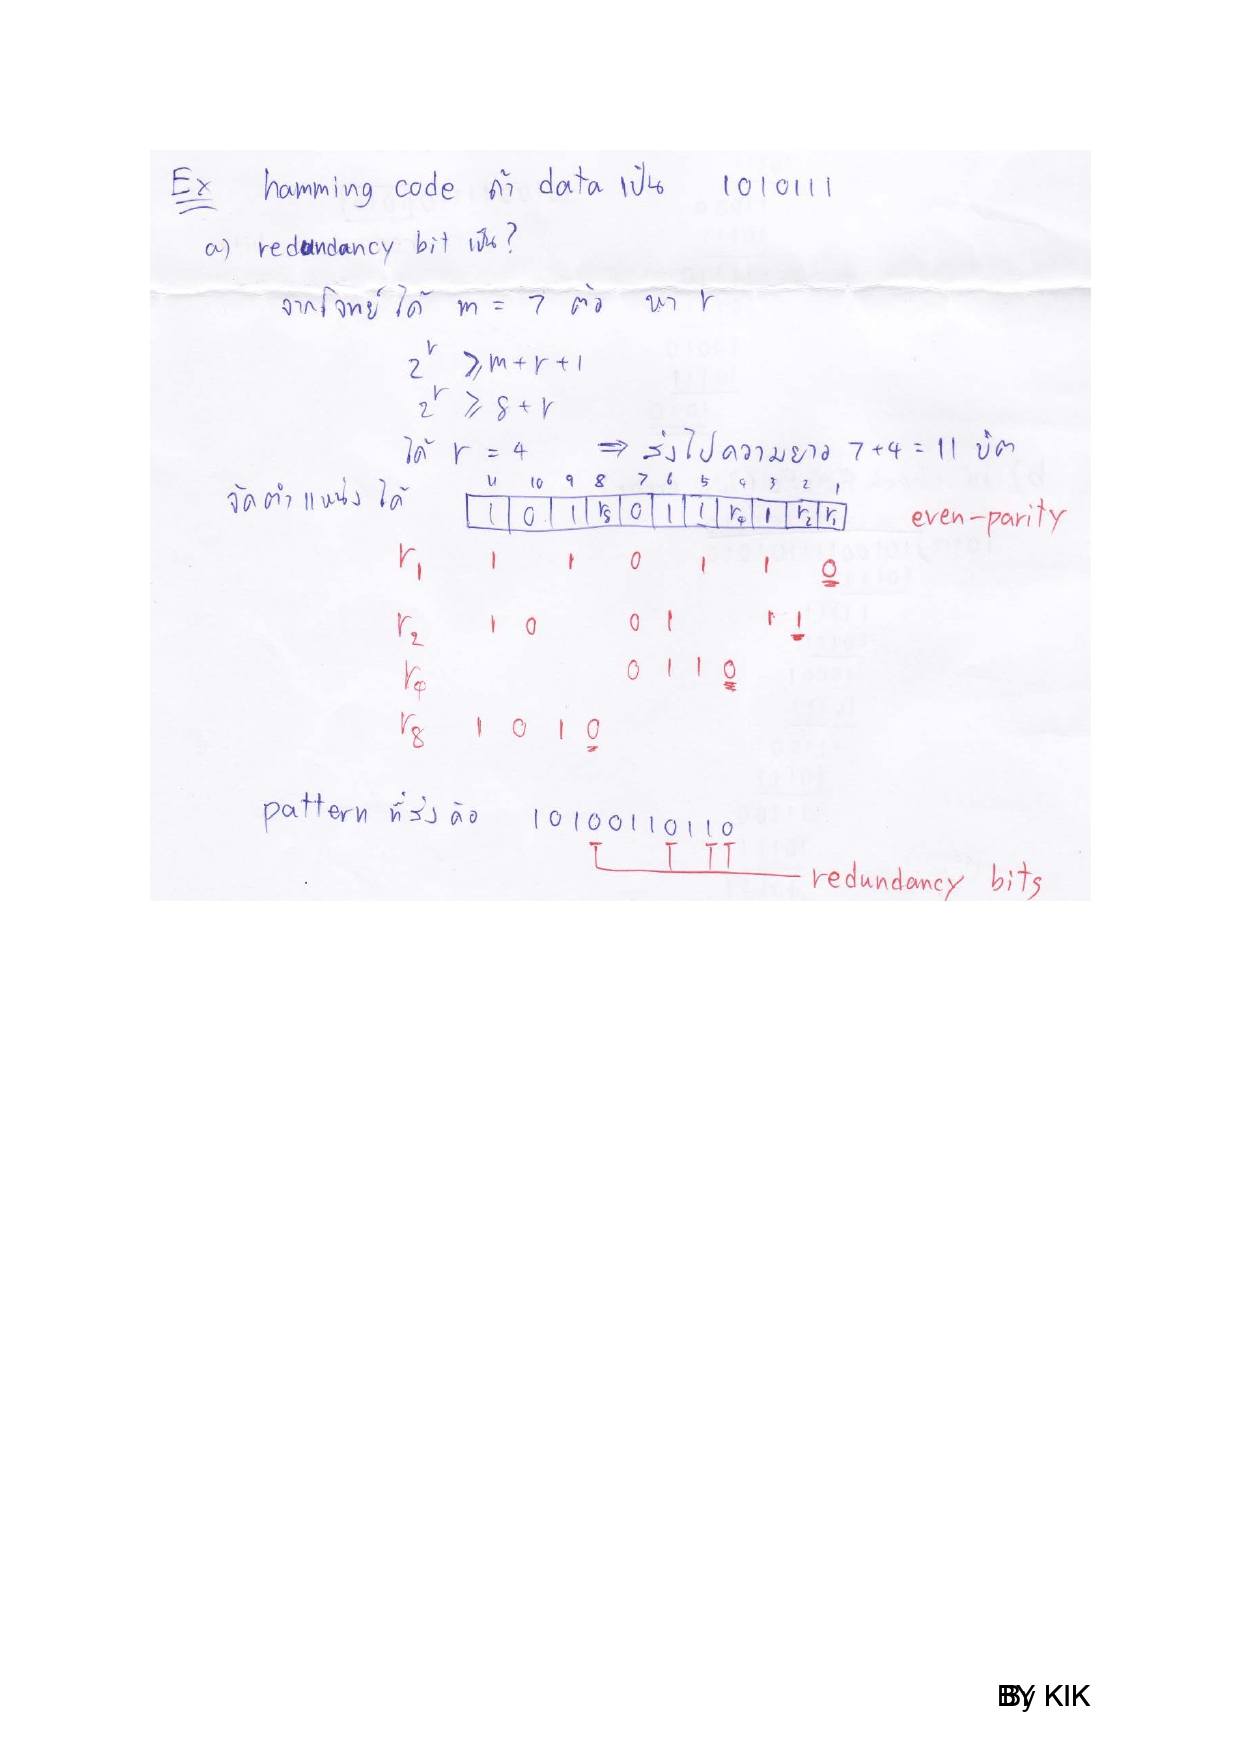 Ex hamming code ถ้า data เป็น 1010111
a) redundancy bit เป็น?
จากโจทย์ได้ m = 7 ต้อง หา r
2^r ≥ m + r + 1
2^r ≥ 8 + r
ได้ r = 4 ⇒ ส่งไปความยาว 7+4 = 11 บิต
11 10 9 8 7 6 5 4 3 2 1
จัดตำแหน่งได้ 1 0 1 r8 0 1 1 r4 1 r2 r1 even-parity
r1 1 1 0 1 1 0
r2 1 0 0 1 1 1
r4 0 1 1 0
r8 1 0 1 0
pattern ที่ส่งคือ 10100110110
redundancy bits
By KIK